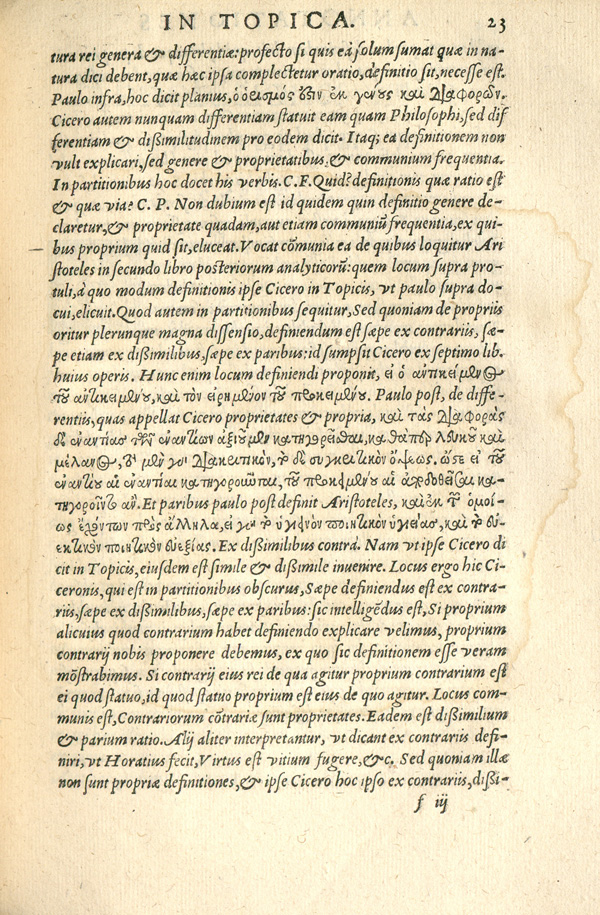 IN TOPICA. 23
tura rei genera & differentiæ: profecto si quis ea solum sumat quæ in na-
tura dici debent, quæ hæc ipsa complectetur oratio, definitio sit, necesse est.
Paulo infra, hoc dicit planius, ὁ ὁρισμός ὅτιν ἐκ γένους καὶ Διαφορῶν.
Cicero autem nunquam differentiam statuit eam quam Philosophi, sed dif
ferentiam & dißimilitudinem pro eodem dicit. Itaq; ea definitionem non
vult explicari, sed genere & proprietatibus, & communium frequentia.
In partitionibus hoc docet his verbis. C. F. Quid? definitionis quæ ratio est
& quæ via? C. P. Non dubium est id quidem quin definitio genere de-
claretur, & proprietate quadam, aut etiam communiũ frequentia, ex qui-
bus proprium quid sit, eluceat. Vocat cõmunia ea de quibus loquitur Ari
stoteles in secundo libro posteriorum analyticorũ: quem locum supra pro-
tuli, à quo modum definitionis ipse Cicero in Topicis, vt paulo supra do-
cui, elicuit. Quod autem in partitionibus sequitur, Sed quoniam de propriis
oritur plerunque magna dissensio, definiendum est sæpe ex contrariis, sæ-
pe etiam ex dißimilibus, sæpe ex paribus: id sumpsit Cicero ex septimo lib.
huius operis. Hunc enim locum definiendi proponit, εἰ ὁ ἀντικείμενος
τοῦ ἀντικειμένου, καὶ τὸν εἰρημένον τοῦ προκειμένου. Paulo post, de diffe-
rentiis, quas appellat Cicero proprietates & propria, καὶ τὰς Διαφορὰς
δὲ ἐναντίας τῶν ἐναντίων ἀξιοῦμεν κατηγορεῖσθαι, καθάπερ λευκοῦ καὶ
μέλανος, τὸ μὲν γὰρ Διακριτικὸν, τὸ δὲ συγκριτικὸν ὄψεως, ὥστε εἰ τοῦ
ἐναντίου αἱ ἐναντίαι κατηγοροῦνται, τοῦ προκειμένου αἱ ἀποδοθεῖσαι κα-
τηγοροῖντο ἄν. Et paribus paulo post definit Aristoteles, καὶ ἐκ τῶν ὁμοί-
ως ἐχόντων πρὸς ἄλληλα, εἰ γὰρ τὸ ὑγιεινὸν ποιητικὸν ὑγιείας, καὶ τὸ εὐ-
εκτικὸν ποιητικὸν εὐεξίας. Ex dißimilibus contra. Nam vt ipse Cicero di
cit in Topicis, eiusdem est simile & dißimile inuenire. Locus ergo hic Ci-
ceronis, qui est in partitionibus obscurus, Sæpe definiendus est ex contra-
riis, sæpe ex dißimilibus, sæpe ex paribus: sic intelligẽdus est, Si proprium
alicuius quod contrarium habet definiendo explicare velimus, proprium
contrarij nobis proponere debemus, ex quo sic definitionem esse veram
mõstrabimus. Si contrarij eius rei de qua agitur proprium contrarium est
ei quod statuo, id quod statuo proprium est eius de quo agitur. Locus com-
munis est, Contrariorum cõtrariæ sunt proprietates. Eadem est dißimilium
& parium ratio. Alij aliter interpretantur, vt dicant ex contrariis defi-
niri, vt Horatius fecit, Virtus est vitium fugere, &c. Sed quoniam illæ
non sunt propriæ definitiones, & ipse Cicero hoc ipso ex contrariis, dißi-
f iij